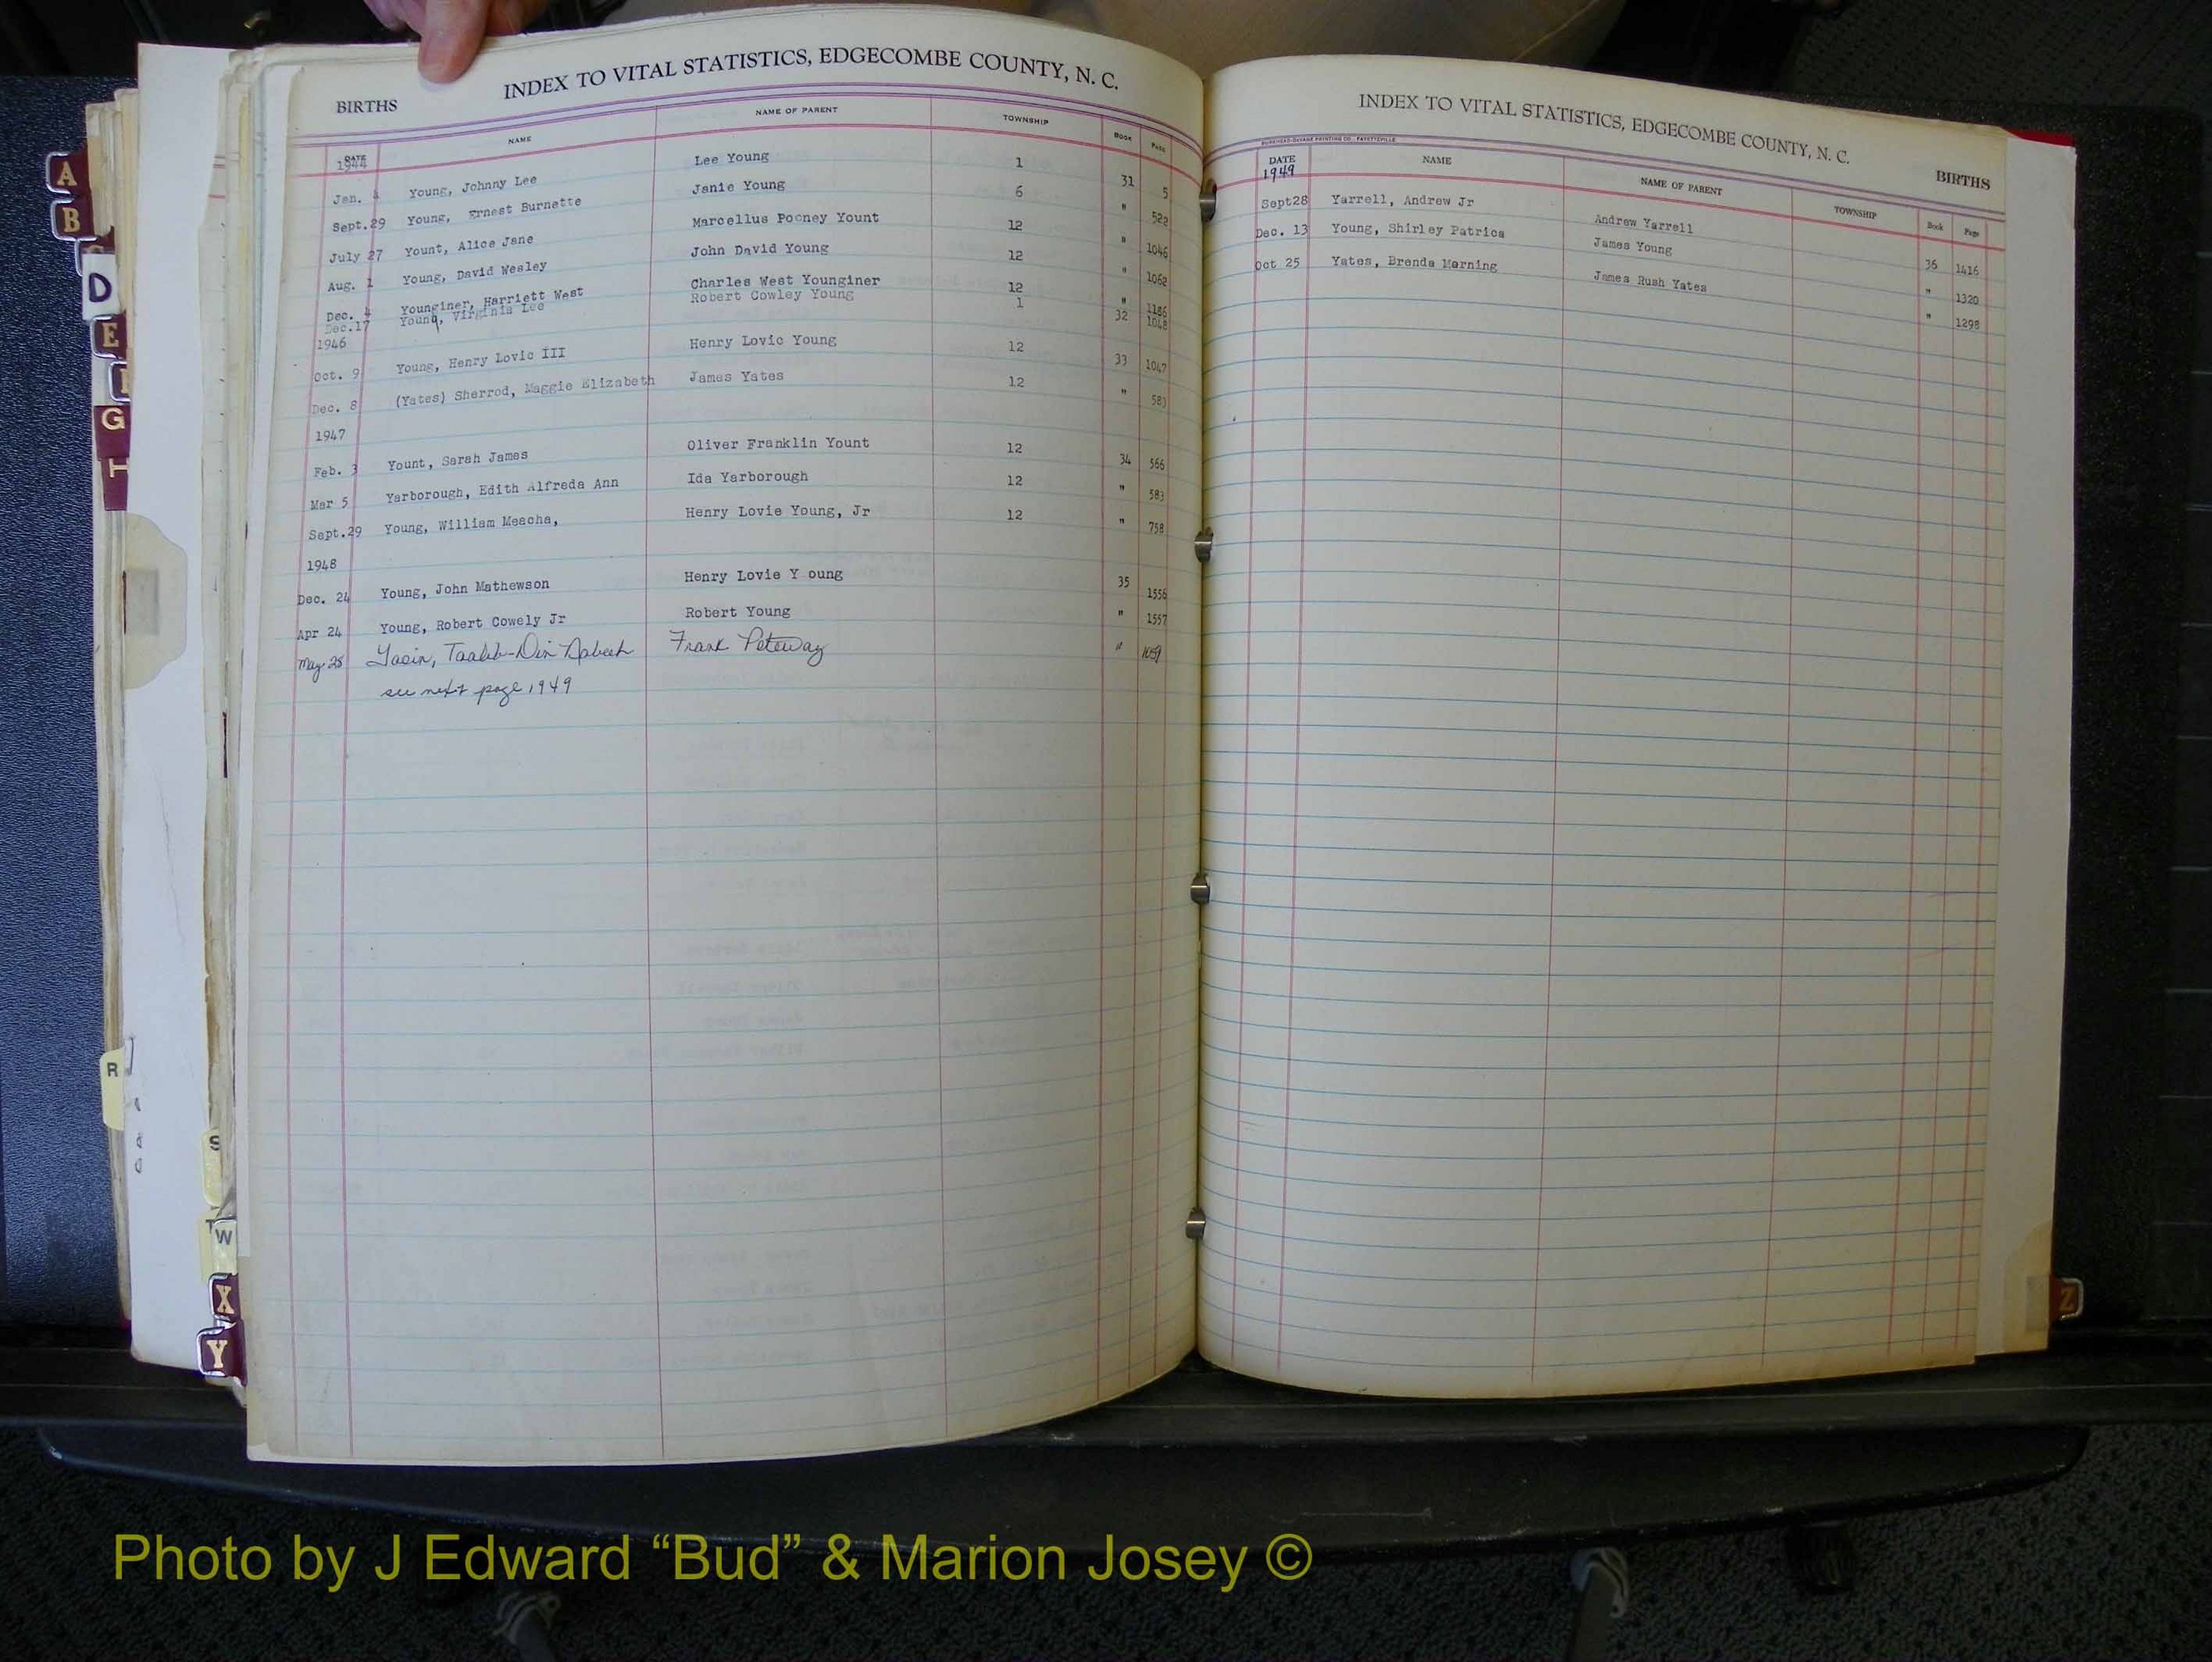 INDEX TO VITAL STATISTICS, EDGECOMBE COUNTY, N. C.
BIRTHS
DATE NAME NAME OF PARENT TOWNSHIP BOOK PAGE
1944
Jan. 4 Young, Johnny Lee Lee Young 1 31 5
Sept.29 Young, Ernest Burnette Janie Young 6 " 522
July 27 Yount, Alice Jane Marcellus Pooney Yount 12 " 1046
Aug. 1 Young, David Wesley John David Young 12 " 1062
Dec. 4 Younginer, Harriett West Charles West Younginer 12 " 1186
Dec.17 Young, Virginia Lee Robert Cowley Young 1 32 1048
1946
Oct. 9 Young, Henry Lovic III Henry Lovic Young 12 33 1047
Dec. 8 (Yates) Sherrod, Maggie Elizabeth James Yates 12 " 583
1947
Feb. 3 Yount, Sarah James Oliver Franklin Yount 12 34 566
Mar 5 Yarborough, Edith Alfreda Ann Ida Yarborough 12 " 583
Sept.29 Young, William Meacha, Henry Lovie Young, Jr 12 " 758
1948
Dec. 24 Young, John Mathewson Henry Lovie Y oung 35 1556
Apr 24 Young, Robert Cowely Jr Robert Young " 1557
May 28 Yasin, Frank Peteway "
see next page 1949
INDEX TO VITAL STATISTICS, EDGECOMBE COUNTY, N. C.
BIRTHS
DATE NAME NAME OF PARENT TOWNSHIP Book Page
1949
Sept28 Yarrell, Andrew Jr Andrew Yarrell 36 1416
Dec. 13 Young, Shirley Patrica James Young " 1320
Oct 25 Yates, Brenda Morning James Rush Yates " 1298
A
B
D
E
G
R
S
T
W
X
Y
Z
Photo by J Edward “Bud” & Marion Josey ©